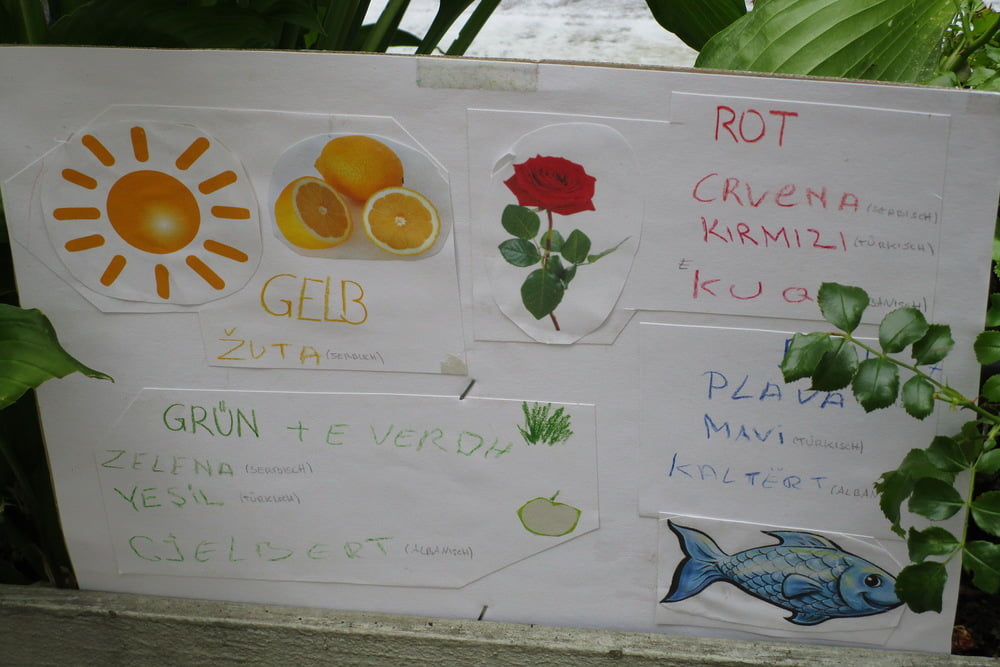 GELB
ŽUTA (SERBISCH)
ROT
CRVENA (SERBISCH)
KIRMIZI (TÜRKISCH)
E KUQ
GRÜN + E VERDH
ZELENA (SERBISCH)
YESIL (TÜRKISCH)
GJELBERT (ALBANISCH)
PLAVA
MAVi (TÜRKISCH)
KALTËRT (ALBAN